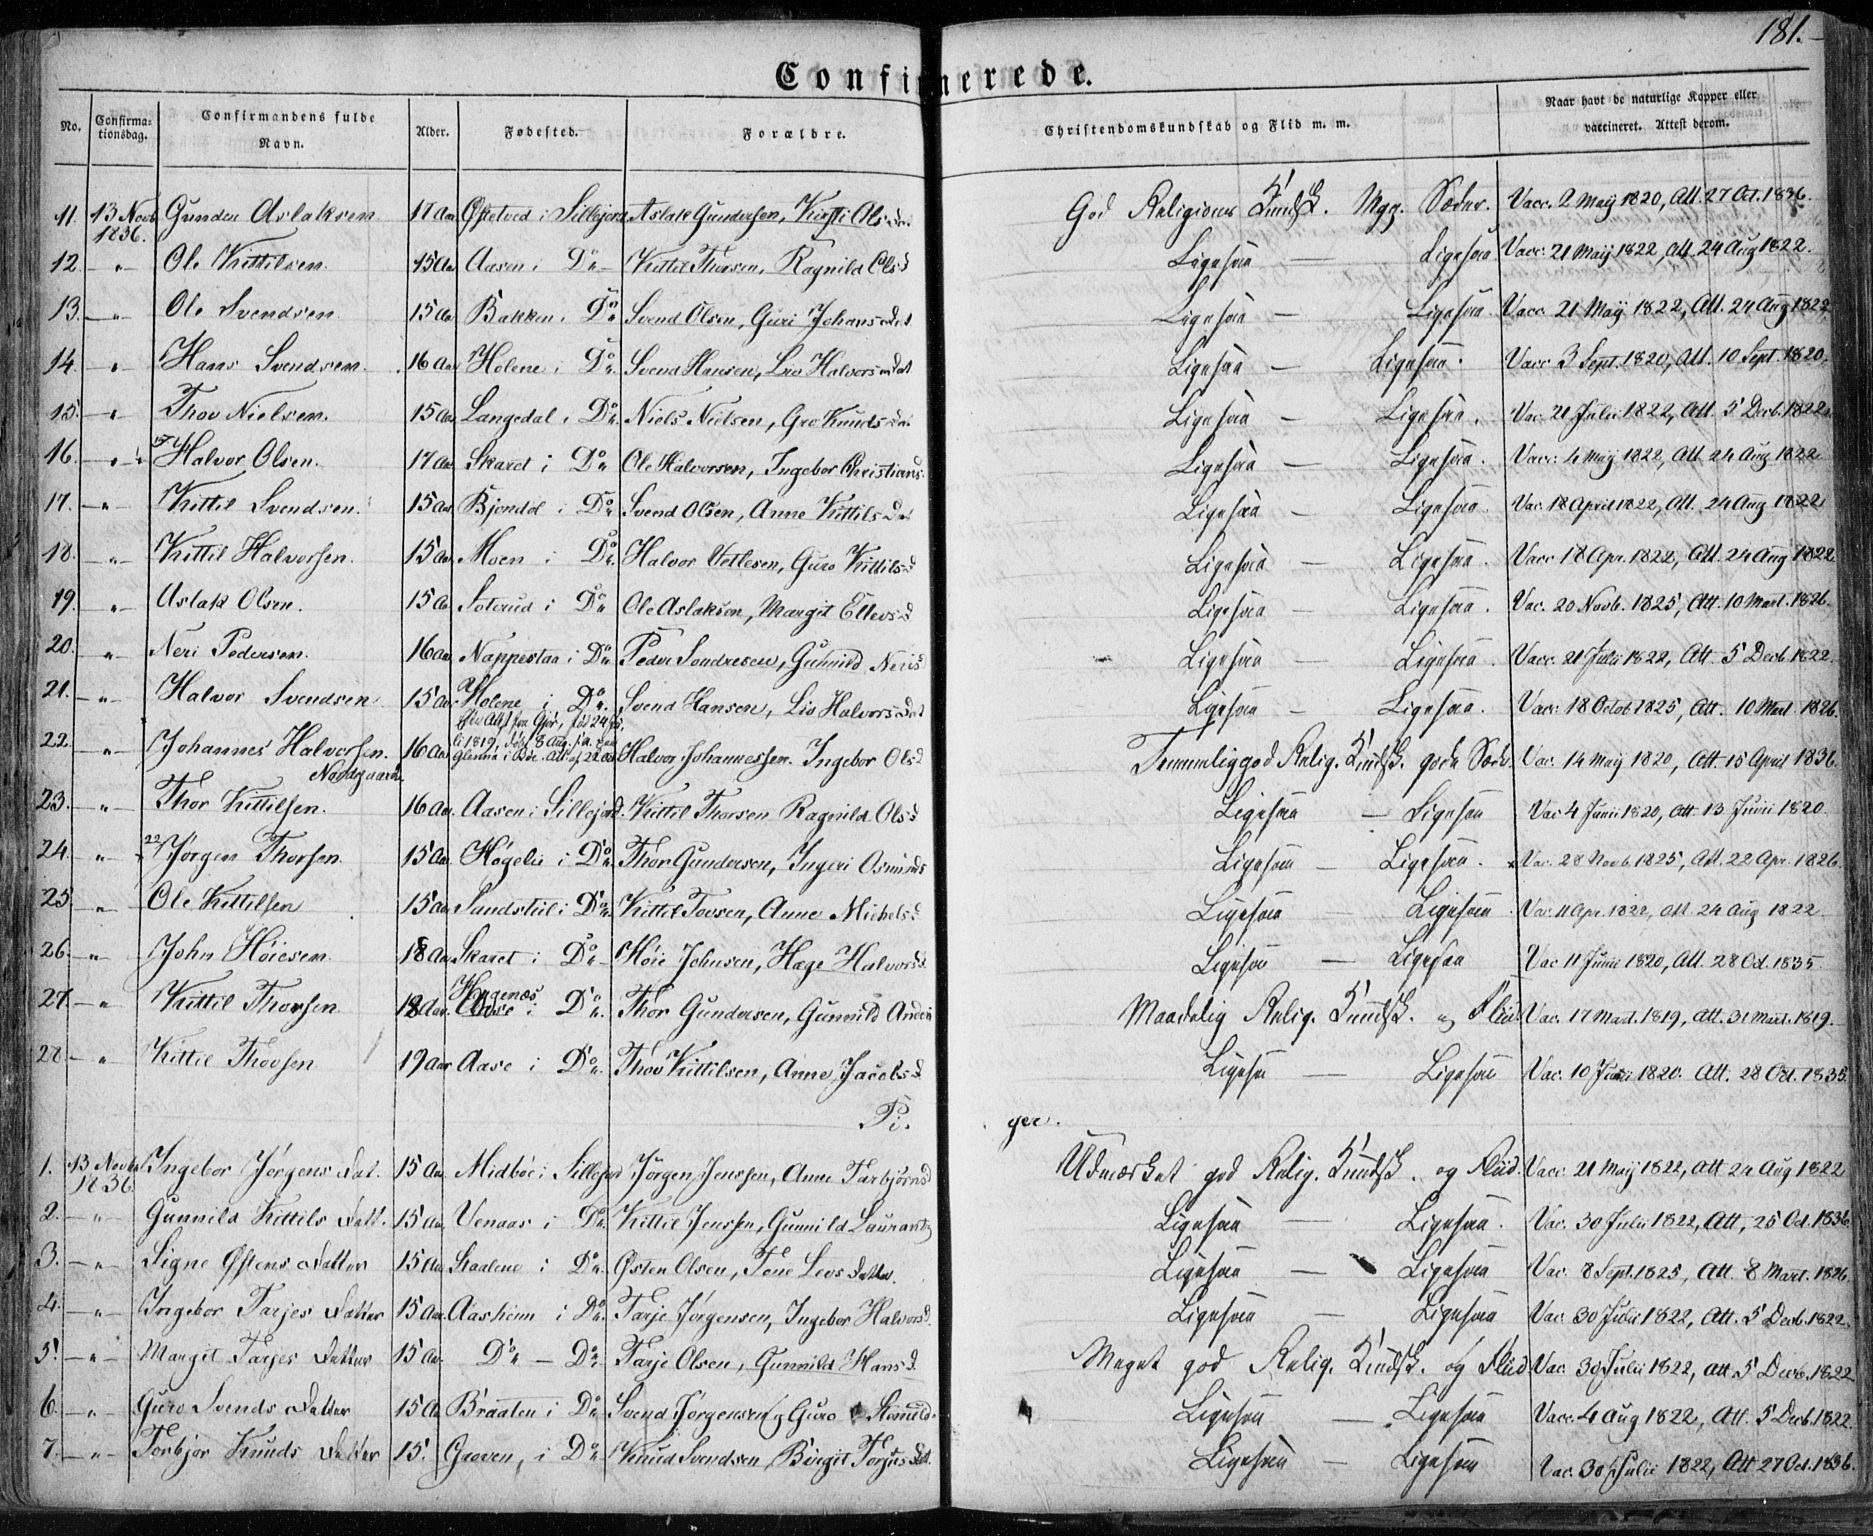 181.
Confirmerede.
No. Confirmationsdag. Confirmandens fulde Navn. Alder. Fødested. Forældre. Christendomskundskab og Flid m. m. Naar havt de naturlige Kopper eller vaccineret. Attest derom.
11. 13 Novb 1836. Gunder Aslaksen 17 Aar Øftetved i Sillejord Aslak Gundersen, Kirsti Olsdat. God Religions Kundsk. Mgg. Sæder. Vacc. 2 Maij 1820, Att. 27 Oct. 1836.
12. -"- Ole Kittilsen. 15 Aar Aasen i Do Kittil Thorsen, Ragnild Olsd Ligesaa — Ligesaa Vacc. 21 Maij 1822, Att. 24 Aug 1822.
13. -"- Ole Svendsen. 15 Aar Bakken i Do Svend Olsen, Guri Johansdat Ligesaa — Ligesaa. Vacc. 21 Maij 1822, Att. 24 Aug 1822
14. " Hans Svendsen. 16 Aar Holene i Do Svend Hansen, Liv Halvorsdat Ligesaa — Ligesaa. Vacc 3 Sept. 1820, Att. 10 Sept. 1820.
15. -"- Thov Nielsen. 15 Aar Langedal i Do Niels Nielsen, Gro Knudsdat Ligesaa — Ligesaa. Vac. 21 Julii 1822, Att. 5 Decb. 1822.
16. -"- Halvor Olsen. 17 Aar Skaret i Do Ole Halvorsen, Ingebor Christians Ligesaa — Ligesaa. Vacc. 4 Maij 1822, Att. 24 Aug 1822
17. -"- Kittil Svendsen. 15 Aar Bjondal i Do Svend Olsen, Anne Kittilsdat Ligesaa — Ligesaa. Vac. 18 April 1822, Att. 24 Aug 1822
18. " Kittil Halvorsen. 15 Aar Moen i Do Halvor Vetlesen, Guro Kittilsd Ligesaa — Ligesaa. Vacc 18 Apr. 1822, Att. 24 Aug 1822
19. " Aslak Olsen. 15 Aar Soterud i Do Ole Aslaksen, Margit Ellevsd Ligesaa — Ligesaa. Vac. 20 Novb. 1825, Att. 10 Mart. 1826.
20. -"- Neri Pedersen. 16 Aar Nappestaa i Do Peder Sondresen, Gunnild Nerisd Ligesaa — Ligesaa. Vacc. 21 Julii 1822, Att. 5 Decb. 1822.
21. -"- Halvor Svendsen 15 Aar Holene i Do. Svend Hansen, Liv Halvorsdat Ligesaa — Ligesaa. Vacc. 18 Octob 1825, Att. 10 Mart 1826.
22. " Johannes Halvorsen. Nordgaarden 16 Aar 1819, 8 Aug. i Böe. Att. af Halvor Johannessen. Ingebor Olsd Temmelig god Relig. Kundsk. gode Sæder Vac. 14 Maij 1820, Att. 15 April 1836.
23. " Thor Kittilsen. 16 Aar. Aasen i Sillejord. Kittil Thorsen Ragnild Olsd Ligesaa — Ligesaa Vac 4 Junii 1820, Att. 13 Junii 1820.
24. " Jørgen Thorsen. 15 Aar Høgelie i Do Thor Gundersen, Ingeri Osmunds Ligesaa — Ligesaa. Vac. 28 Novb. 1825, Att. 22 Apr. 1826.
25. " Ole Kittilsen 15 Aar Sandstiil i Do Kittil Tovsen, Anne Michelsd Ligesaa — Ligesaa. Vac. 11 Apr. 1822, Att 24 Aug 1822.
26. -"- John Høiesen 18 Aar Skaret i Do Høie Johnsen, Hæge Halvorsd. Ligesaa — Ligesaa Vac 11 Junii 1820, Att. 28 Oct. 1835.
27. -"- Kittil Thorsen. 18 Aar. Hagenæs i Do. Thor Gundersen, Gunnild Ligesaa Maadelig Relig. Kundsk. og Fliid Vac. 17 Mart. 1819, Att. 31 Mart. 1819.
28. -"- Kittil Thovsen 19 Aar Aase i Do. Thov Kittilsen, Anne Jacobsd Ligesaa — Ligesaa Vac. 10 Junii 1820. Att. 28 Oct. 1835.
Pi. ger.
1. 13 Novbr 1836 Ingebor Jørgens Dat. 15 Aar Midböe i Sillejord Jørgen Jenssen, Anne Tarbjørnsd Udmærket god Relig. Kundsk. og Fliid. Vacc. 21 Maij 1822, Att 24 Aug 1822
2. -"- Gunnild Kittils Datt. 15 Aar Venaas i Do. Kittil Jenssen, Gunnild Laurantz Ligesaa — Ligesaa. Vac. 30 Julii 1822, Att. 25 Oct. 1836
3. -"- Signe Østens Datter 15 Aar Staalene i Do. Østen Olsen, Tone Leos Datter. Ligesaa — Ligesaa Vac. 8 Sept. 1825, Att. 8 Mart. 1826
4. -"- Ingebor Tarjes Datter 15 Aar. Aasheim i Do. Tarje Jørgensen, Ingebor Halvorsd. Ligesaa — Ligesaa Vac. 30 Julii 1822, Att. 5 Decb. 1822.
5. -"- Margit Tarjes Datter 15 Aar Do — Do. Tarje Olsen, Gunnild Hansd. Meget god Relig. Kundsk. og Fliid Vac. 30 Julii 1822, Att. 5 Decb. 1822
6. -"- Guro Svends Datter 15 Aar Braaten i Do Svend Jørgensen, Guro Ligesaa — Ligesaa Vacc. 4 Aug 1822, Att. 5 Decb. 1822.
7. -"- Torbjør Knuds Datter 15. Groven, i Do Knud Svendsen, Birgit Torjusdat. Ligesaa — Ligesaa Vac. 30 Julii 1822, Att 27 Oct. 1836.